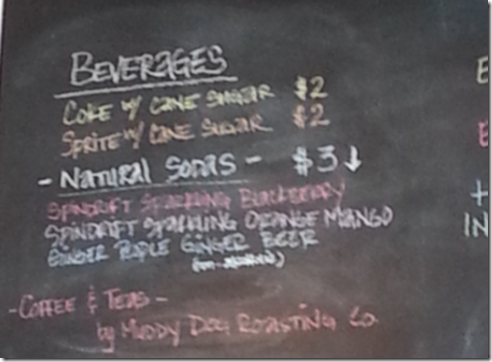 BEVERAGES
COKE W/ CANE SUGAR $2
SPRITE W/ CANE SUGAR $2
- NATURAL SODAS - $3 ↓
SPINDRIFT SPARKLING BLACKBERRY
SPINDRIFT SPARKLING ORANGE MANGO
GINGER PEOPLE GINGER BEER
- COFFEE & TEAS -
by MUDDY DOG ROASTING CO.
E
E
+
IN